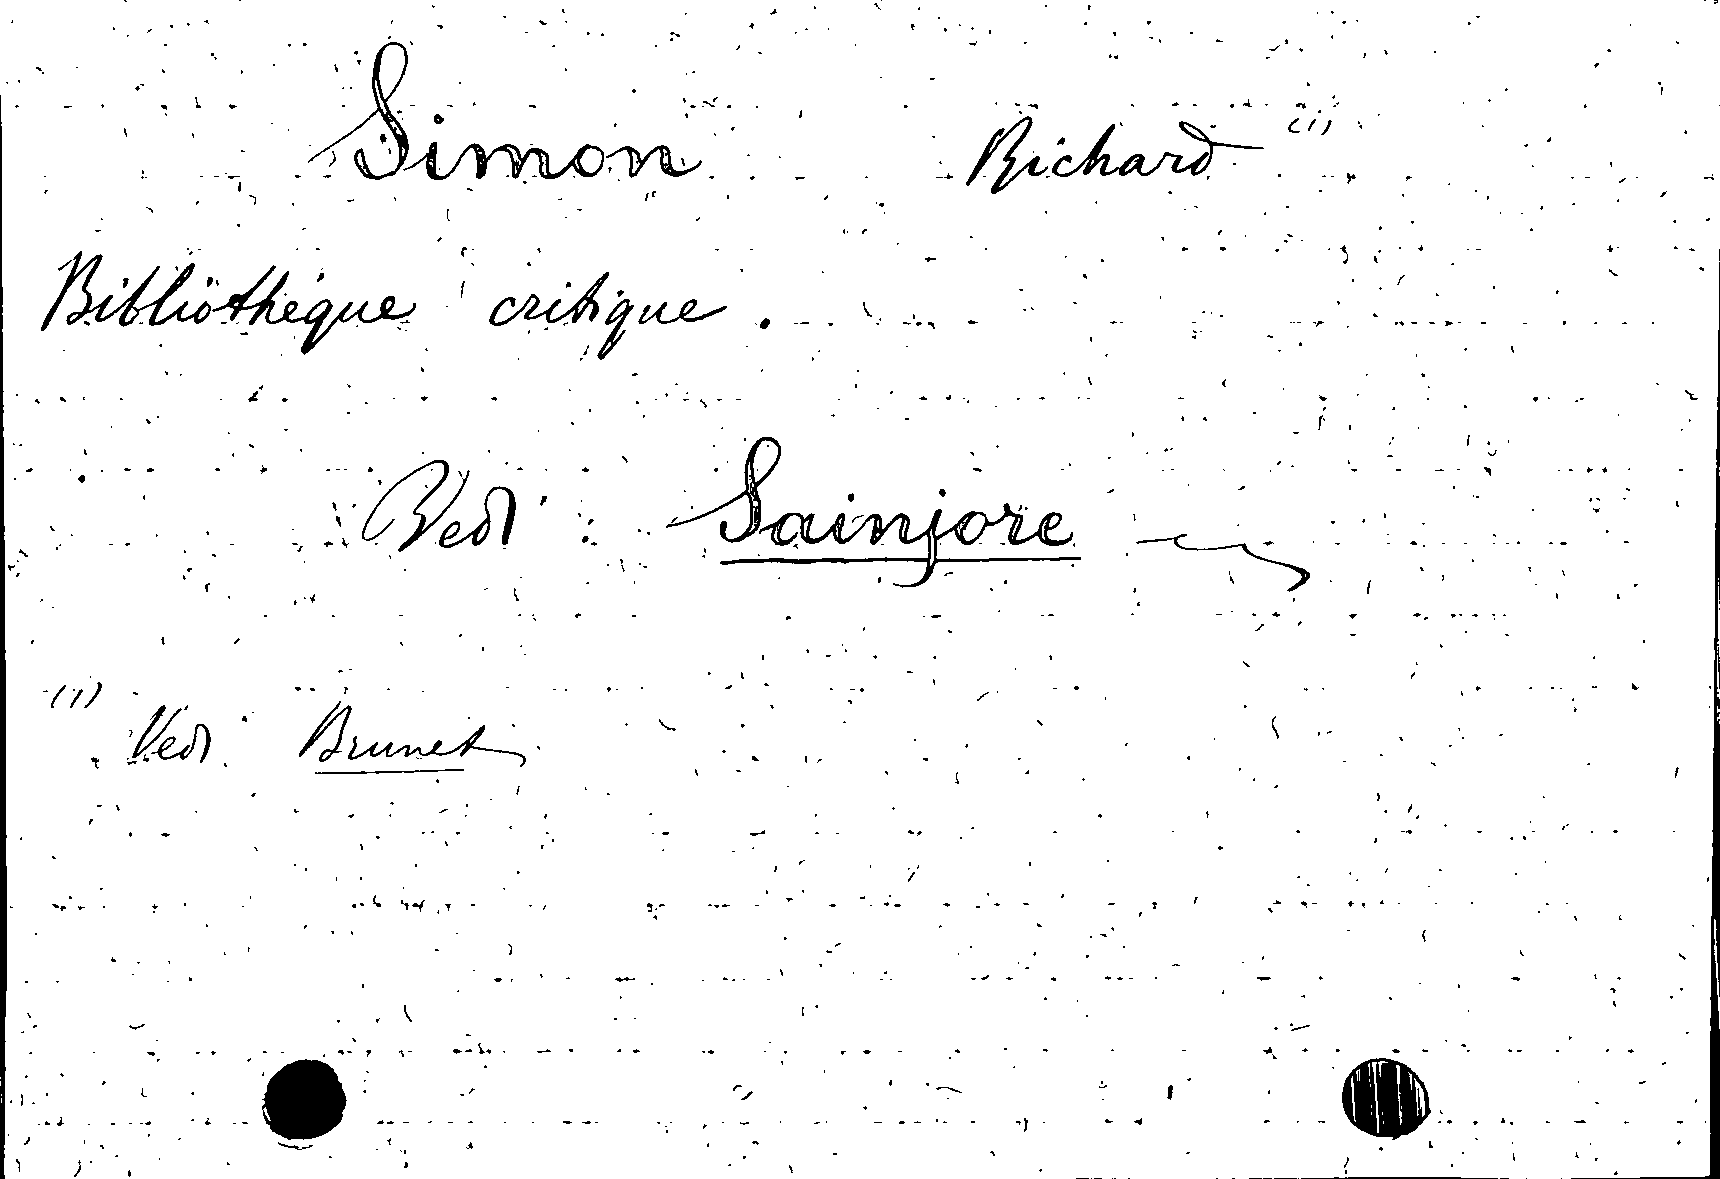 Simon Richard (1)
Bibliothèque critique.
Vedi: Sainjore
(1)
Vedi Brunet